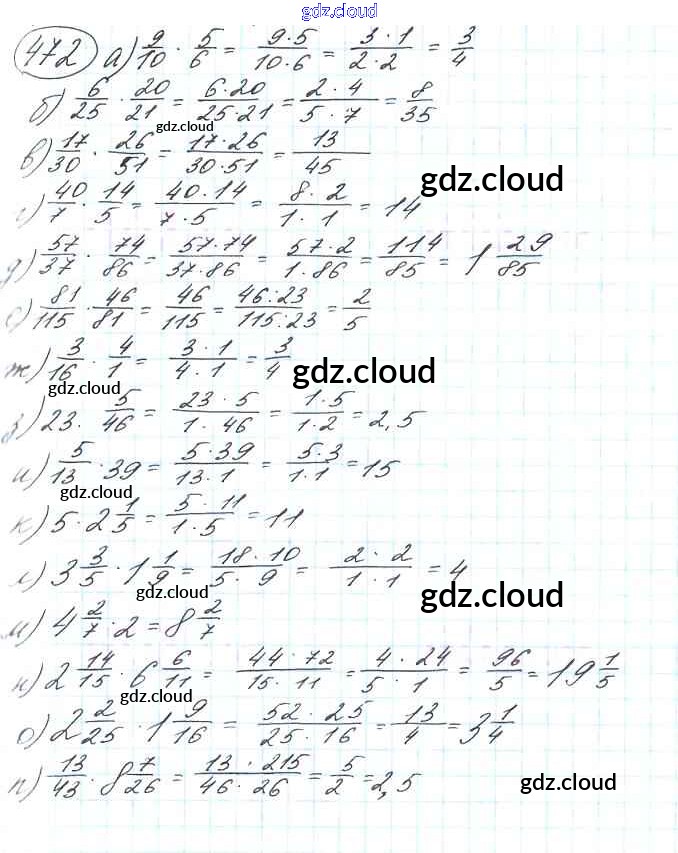 gdz.cloud
472 а) 9/10 · 5/6 = 9·5/10·6 = 3·1/2·2 = 3/4
б) 6/25 · 20/21 = 6·20/25·21 = 2·4/5·7 = 8/35
gdz.cloud
в) 17/30 · 26/51 = 17·26/30·51 = 13/45
gdz.cloud
г) 40/7 · 14/5 = 40·14/7·5 = 8·2/1·1 = 14
д) 57/37 · 74/86 = 57·74/37·86 = 57·2/1·86 = 114/85 = 1 29/85
е) 81/115 · 46/81 = 46/115 = 46:23/115:23 = 2/5
ж) 3/16 · 4/1 = 3·1/4·1 = 3/4
gdz.cloud
gdz.cloud
з) 23 · 5/46 = 23·5/1·46 = 1·5/1·2 = 2,5
и) 5/13 · 39 = 5·39/13·1 = 5·3/1·1 = 15
gdz.cloud
к) 5 · 2 1/5 = 5·11/1·5 = 11
л) 3 3/5 · 1 1/9 = 18·10/5·9 = 2·2/1·1 = 4
gdz.cloud
gdz.cloud
м) 4 2/7 · 2 = 8 2/7
н) 2 14/15 · 6 6/11 = 44·72/15·11 = 4·24/5·1 = 96/5 = 19 1/5
gdz.cloud
о) 2 2/25 · 1 9/16 = 52·25/25·16 = 13/4 = 3 1/4
п) 13/43 · 8 7/26 = 13·215/46·26 = 5/2 = 2,5
gdz.cloud